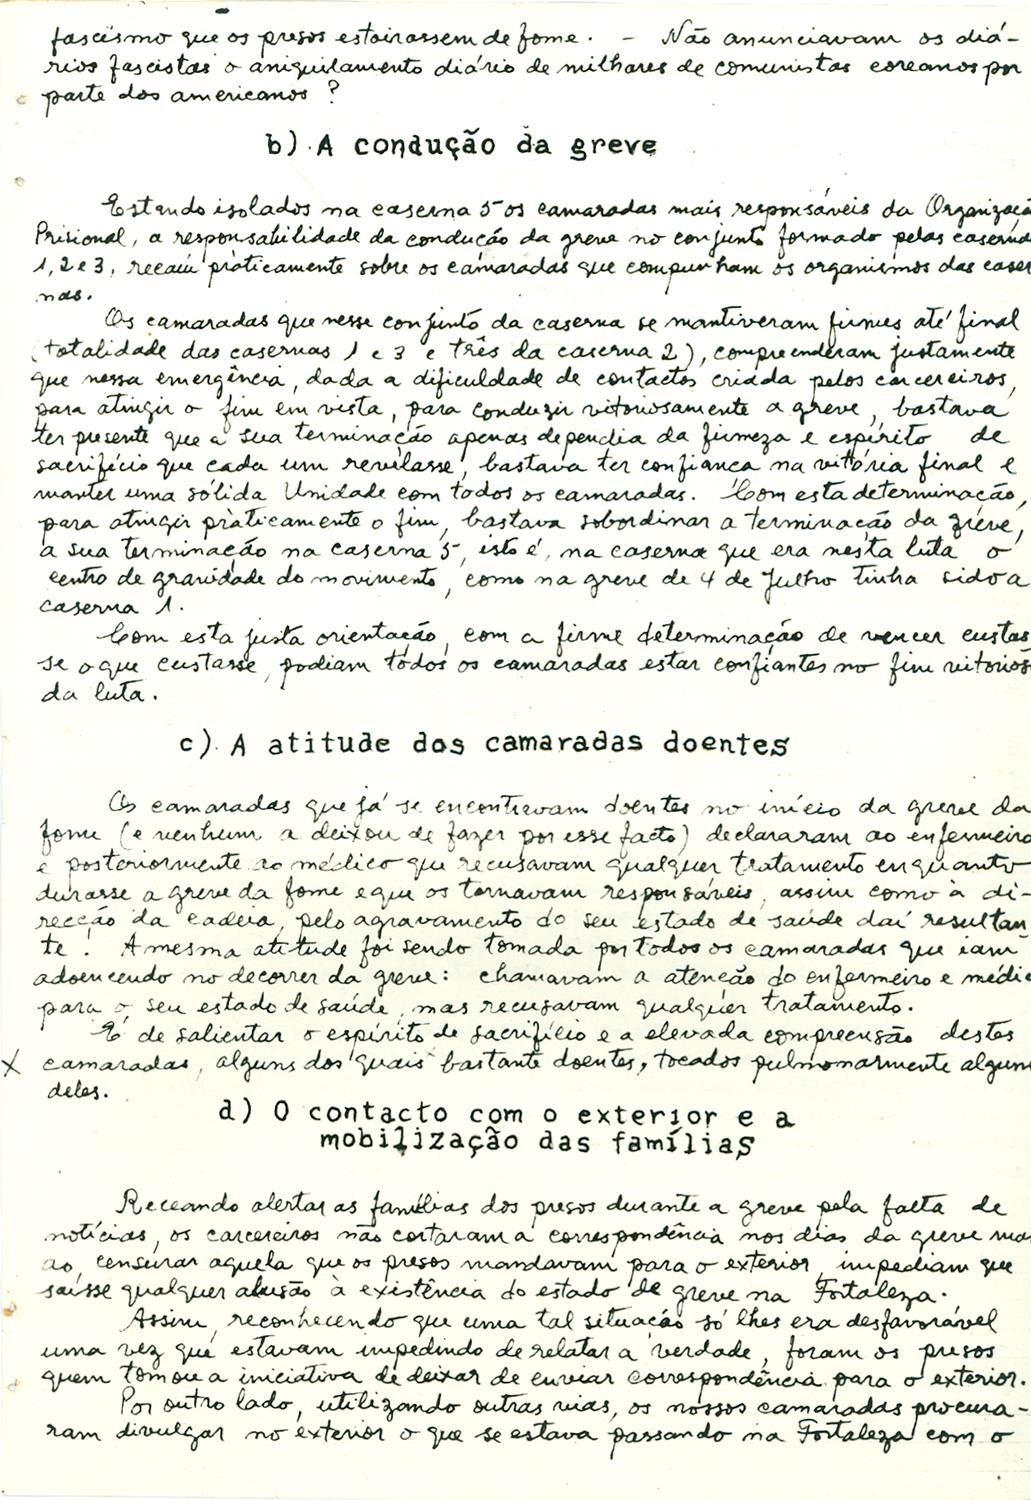 fascismo que os presos estoirassem de fome. - Não anunciavam os diá-
rios fascistas o aniquilamento diário de milhares de comunistas coreanos por
parte dos americanos?
b) A condução da greve
Estando isolados na caserna 5 os camaradas mais responsáveis da Organizaçã
Prisional, a responsabilidade da condução da greve no conjunto formado pelas caserna
1, 2 e 3, recaíu pràticamente sobre os camaradas que compunham os organismos das caser
nas.
Os camaradas que nesse conjunto da caserna se mantiveram firmes até final
(totalidade das casernas 1 e 3 e três da caserna 2), compreenderam justamente
que nessa emergência, dada a dificuldade de contactos criada pelos carcereiros,
para atingir o fim em vista, para conduzir vitoriosamente a greve, bastava
ter presente que a sua terminação apenas dependia da firmeza e espírito de
sacrifício que cada um revelasse, bastava ter confiança na vitória final e
manter uma sólida Unidade com todos os camaradas. Com esta determinação,
para atingir pràticamente o fim, bastava sobordinar a terminação da greve,
a sua terminação na caserna 5, isto é, na caserna que era nesta luta o
centro de gravidade do movimento, como na greve de 4 de Julho tinha sido a
caserna 1.
Com esta justa orientação, com a firme determinação de vencer custas
se o que custasse, podiam todos os camaradas estar confiantes no fim vitorios
da luta.
c) A atitude dos camaradas doentes
Os camaradas que já se encontravam doentes no início da greve da
fome (e nenhum a deixou de fazer por esse facto) declararam ao enfermeiro
e posteriormente ao médico que recusavam qualquer tratamento enquanto
durasse a greve da fome e que os tornavam responsáveis, assim como à di-
recção da cadeia, pelo agravamento do seu estado de saúde daí resultan
te. A mesma atitude foi sendo tomada por todos os camaradas que iam
adoencendo no decorrer da greve: chamavam a atenção do enfermeiro e médic
para o seu estado de saúde, mas recusavam qualquer tratamento.
É de salientar o espírito de sacrifício e a elevada compreensão destes
X camaradas, alguns dos quais bastante doentes, tocados pulmonarmente alguns
deles.
d) O contacto com o exterior e a
mobilização das famílias
Receando alertar as famílias dos presos durante a greve pela falta de
notícias, os carcereiros não cortaram a correspondência nos dias da greve mas
ao censurar aquela que os presos mandavam para o exterior, impediam que
saísse qualquer alusão à existência do estado de greve na Fortaleza.
Assim, reconhecendo que uma tal situação só lhes era desfavorável
uma vez que estavam impedindo de relatar a verdade, foram os presos
quem tomou a iniciativa de deixar de enviar correspondência para o exterior.
Por outro lado, utilizando outras vias, os nossos camaradas procura-
ram divulgar no exterior o que se estava passando na Fortaleza com o